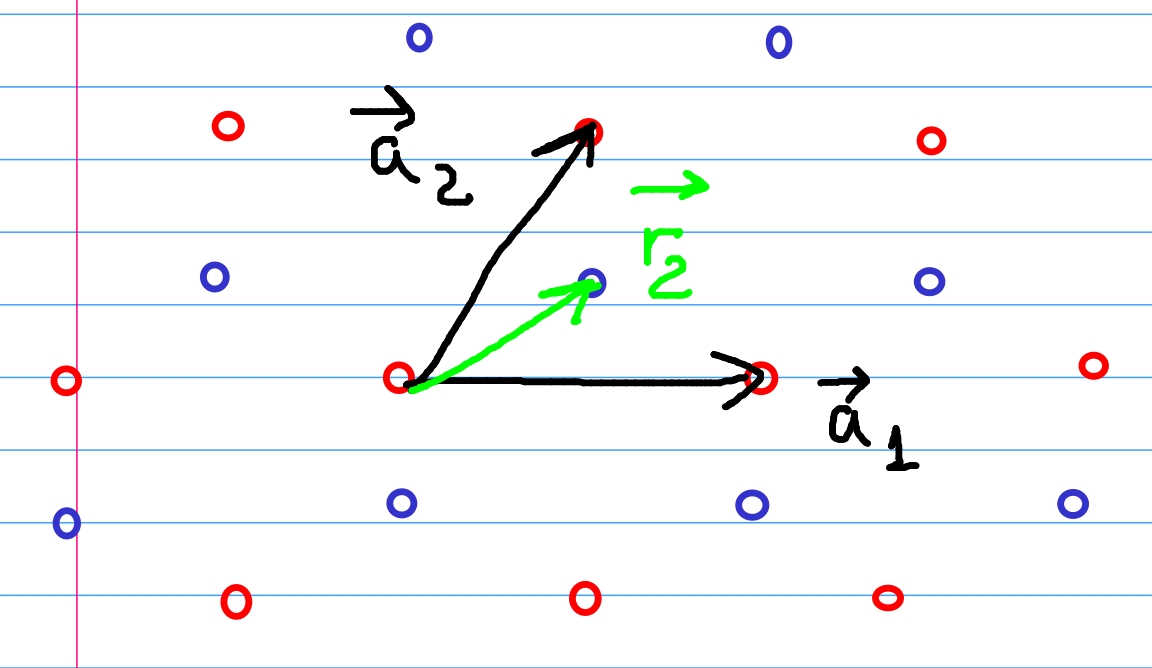 a⃗₂
r⃗₂
a⃗₁